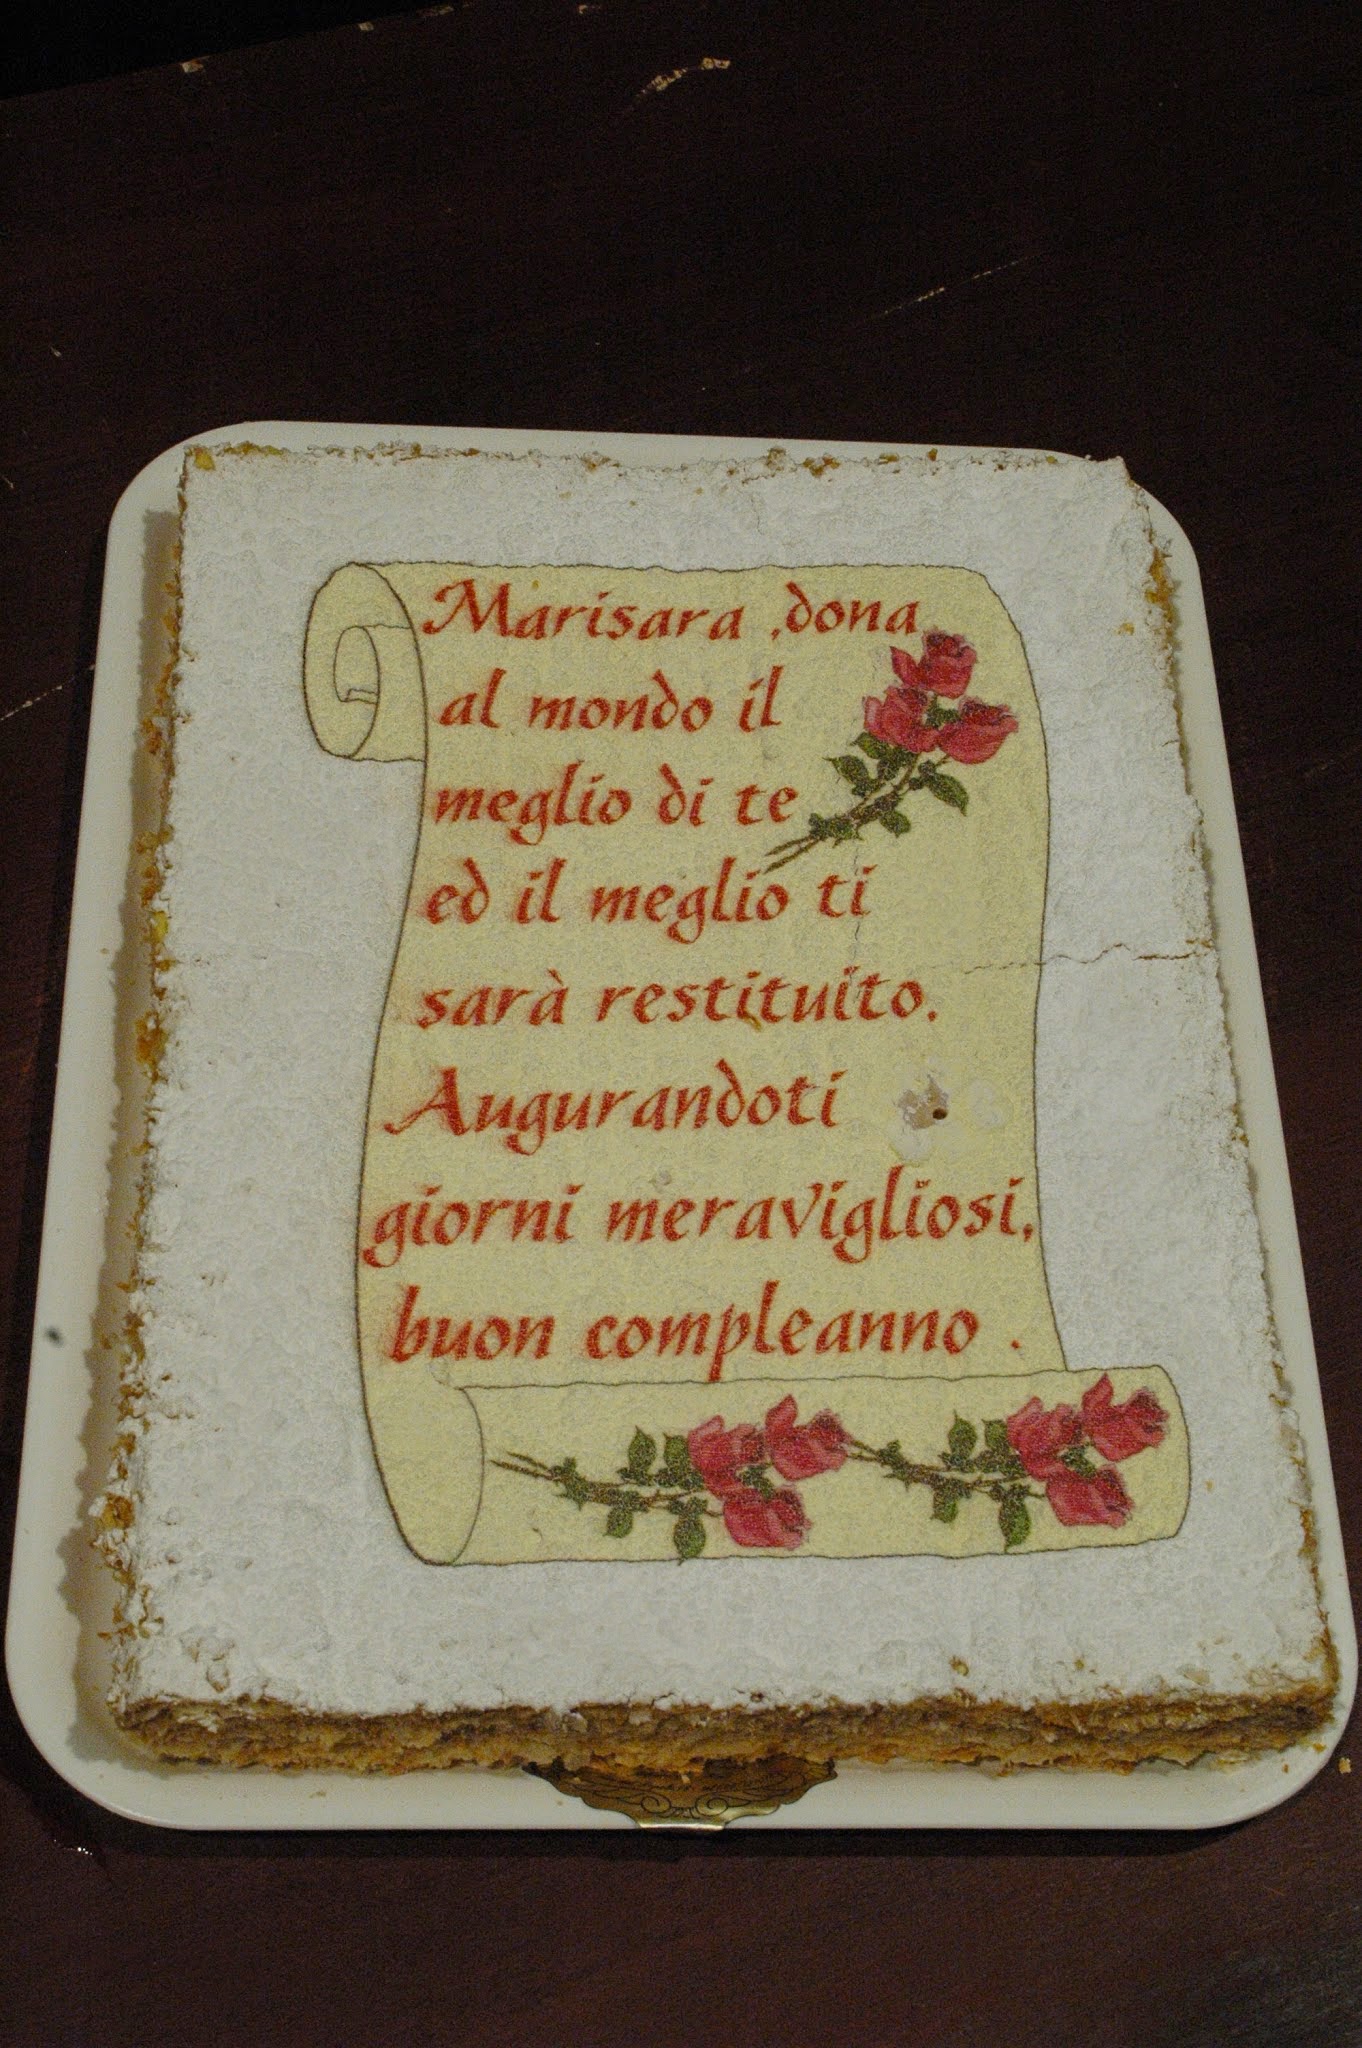 Marisara ,dona
al mondo il
meglio di te
ed il meglio ti
sarà restituito.
Augurandoti
giorni meravigliosi,
buon compleanno .